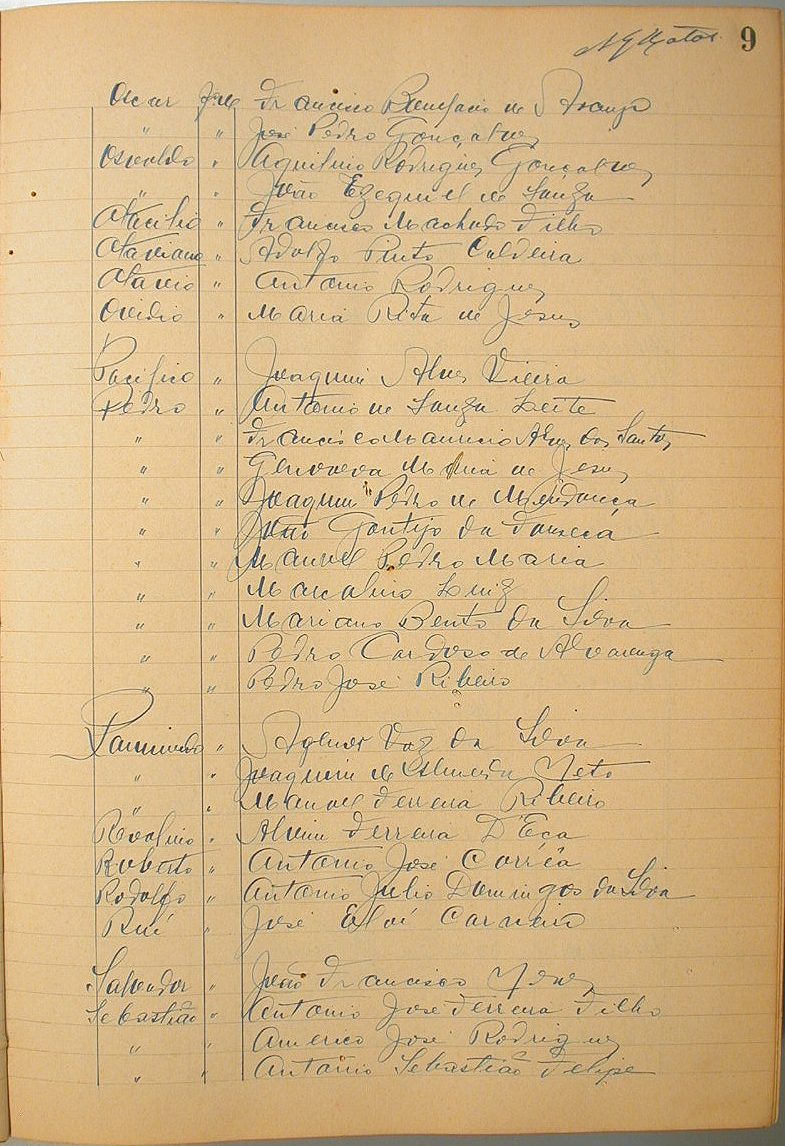 9
Oscar filho Francisco Bonifacio de Araujo
" " José Pedro Gonçalves
Osvaldo " Aquilino Rodrigues Gonçalves
" " João Ezequiel de Souza
Otacilio " Francisco Machado Filho
Otaviano " Adolfo Pinto Caldeira
Otavio " Antonio Rodrigues
Ovidio " Maria Rita de Jesus
Pacifico " Joaquim Alves Vieira
Pedro " Antonio de Souza Leite
" " Francisco Mauricio Alves dos Santos
" " Genoveva Maria de Jesus
" " Joaquim Pedro de Mendonça
" " João Gontijo da Fonseca
" " Manoel Pedro Maria
" " Marcolino Luiz
" " Mariano Bento da Silva
" " Pedro Cardoso de Alvarenga
" " Pedro José Ribeiro
Raimundo " Agenor Vaz da Silva
" " Joaquim de Almeida Neto
" " Manoel Ferreira Ribeiro
" Alvim Ferreira D'Eça
Roberto " Antonio José Corrêa
Rodolfo " Antonio Julio Domingos da Silva
Rui " José Eloi Carneiro
Salvador " João Francisco Neves
Sebastião " Antonio José Ferreira Filho
" " Americo José Rodrigues
" " Antonio Sebastião Felipe